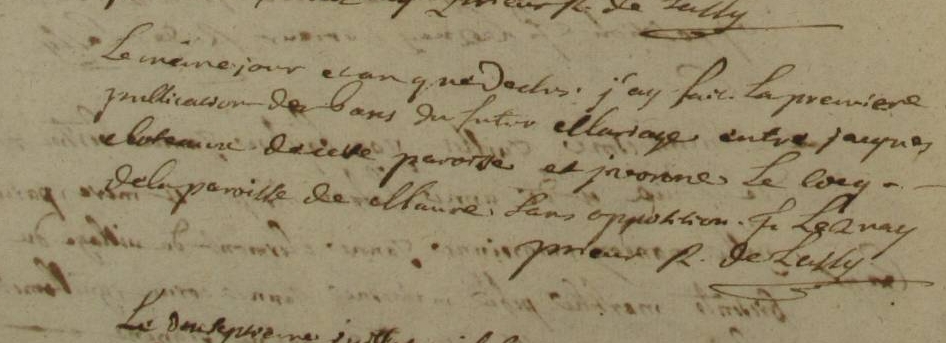 prieur R. de Lussy
Le mème jour et an que Dessus. j'ay fait. La premiere
publication des bans du futur Mariage entre jacques
de cette paroisse et yvonne Le Cocq
dela paroisse de Maure. sans opposition. f. Lesnay
prieur R. de Lussy.
Le